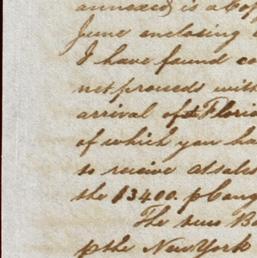 annexed is a Cop
June enclosing
I have found co
net proceeds with
arrival of Florid
of which you ha
to receive at sales
the 13400.
The two B
p the New York